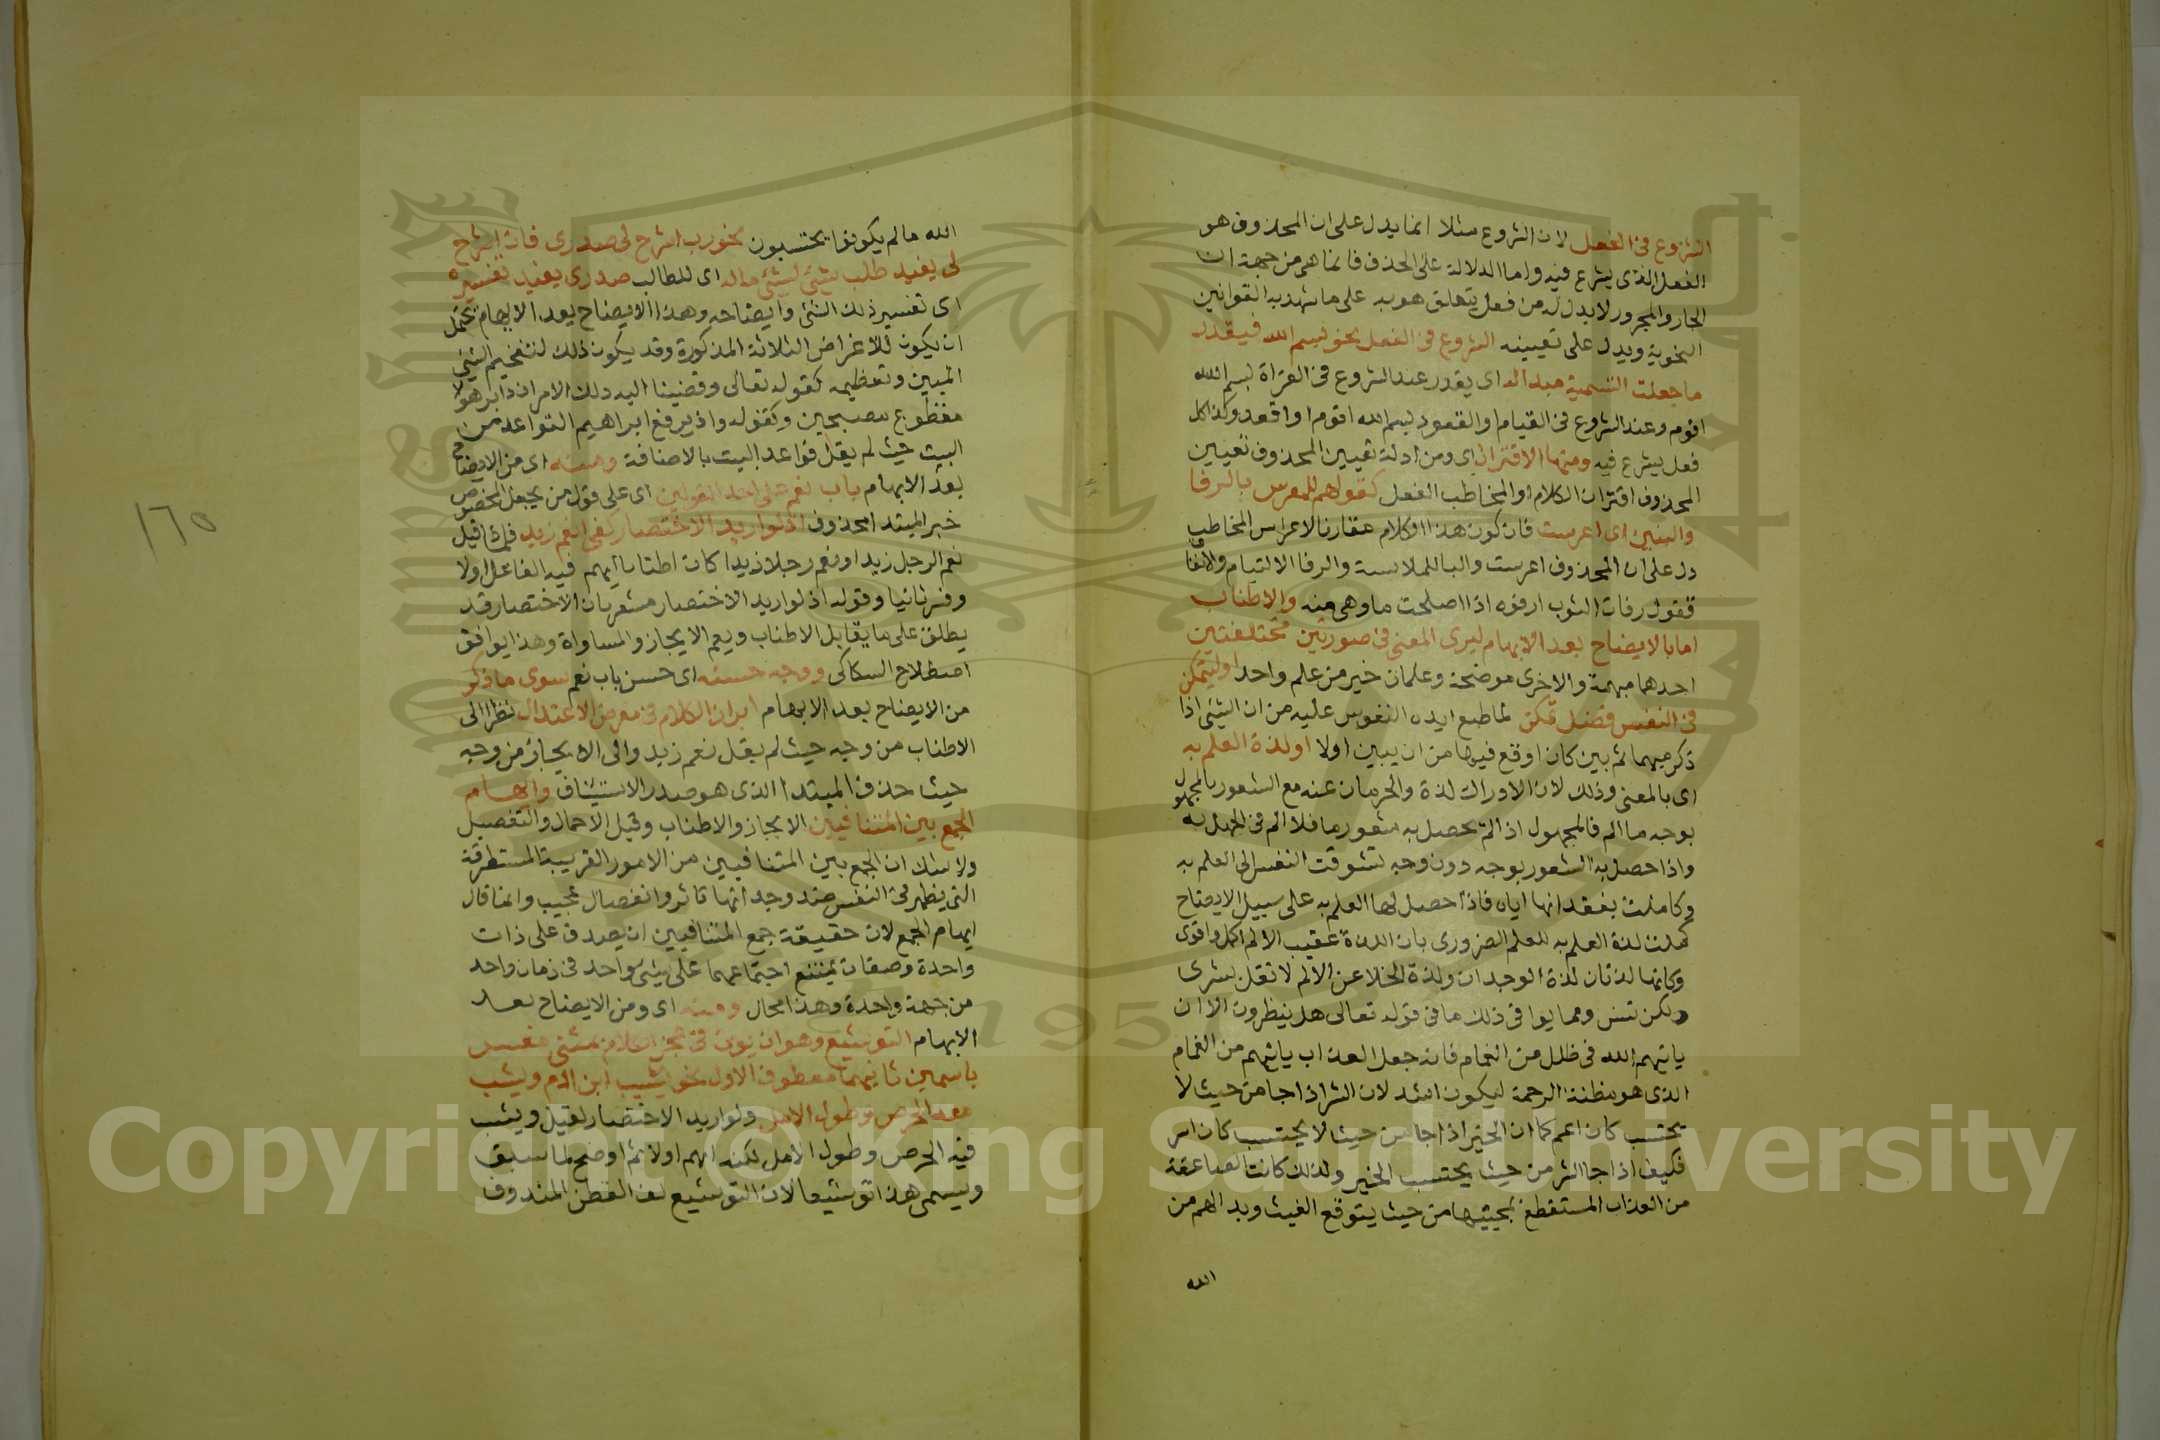 الشروع فى الفعل لان الشروع مثلا انما يدل على ان المحذوف هو
الفعل الذى يشرع فيه واما الدلالة على الحذف فانما هى من جهة ان
الجار والمجرور لابد له من فعل يتعلق هو به على ما تشهد به القوانين
النحوية ويدل على تعيينه الشروع فى الفعل نحو بسم الله فيقدر
ما جعلت التسمية مبدا له اى يقدر عند الشروع فى القراة بسم الله
اقوم وعند الشروع فى القيام والقعود بسم الله اقوم او اقعد وكذا كل
فعل يشرع فيه ومنها الاقتران اى ومن ادلة تعيين المحذوف تعيين
المحذوف اقتران الكلام او المخاطب الفعل كقولهم للمعرس بالرفا
والبنين اى اعرست فان كون هذا الكلام مقارنا لاعراس المخاطب
دل على ان المحذوف اعرست والبا للملابسة والرفا الالتيام والاتفاق
تقول رفات الثوب ارفوه اذا اصلحت ما وهى منه والاطناب
اما بالايضاح بعد الابهام ليرى المعنى فى صورتين مختلفتين
احدهما مبهمة والاخرى موضحة وعلمان خير من علم واحد او ليتمكن
فى النفس فضل تمكن لما طبع الله النفوس عليه من ان الشئ اذا
ذكر مبهما ثم بين كان اوقع فيها من ان يبين اولا او لذة العلم به
اى بالمعنى وذلك لان الادراك لذة والحرمان عنه مع الشعور بالمجهول
بوجه ما الم فالمجهول اذا لم يحصل به شعور ما فلا الم فى الجهل به
واذا حصل به الشعور بوجه دون وجه تشوقت النفس الى العلم به
وتالمت بفقدانها اياه فاذا حصل لها العلم به على سبيل الايضاح
كملت لذة العلم به للعلم الضرورى بان اللذة عقيب الالم اكمل واقوى
وكانها لذتان لذة الوجدان ولذة الخلاص عن الالم
ومما يوافق ذلك ما فى قوله تعالى هل ينظرون الا ان
ياتيهم الله فى ظلل من الغمام فانه جعل العذاب ياتيهم من الغمام
الذى هو مظنة الرحمة ليكون اشد لان الشر اذا جا من حيث لا
يحتسب كان اغم كما ان الخير اذا جا من حيث لا يحتسب كان اسر
فكيف اذا جا الشر من حيث يحتسب الخير ولذلك كانت الصاعقة
من العذاب المستفظع لمجيئها من حيث يتوقع الغيث وبدا لهم من
الله
الله ما لم يكونوا يحتسبون نحو رب اشرح لى صدرى فان اشرح
لى يفيد طلب شئ لشئ ما له اى للطالب صدرى يفيد تفسيره
اى تفسير ذلك الشئ وايضاحه وهذا الايضاح بعد الابهام يحتمل
ان يكون للاغراض الثلاثة المذكورة وقد يكون ذلك لتفخيم الشئ
المبين وتعظيمه كقوله تعالى وقضينا اليه ذلك الامر ان دابر هولا
مقطوع مصبحين وكقوله واذ يرفع ابراهيم القواعد من
البيت حيث لم يقل قواعد البيت بالاضافة ومنه اى من الايضاح
بعد الابهام باب نعم على احد القولين اى على قول من يجعل المخصوص
خبر المبتدا محذوف اذ لو اريد الاختصار كفى نعم زيد فلما قيل
نعم الرجل زيد او نعم رجلا زيدا كان اطنابا ابهم فيه الفاعل اولا
وفسر ثانيا وقوله اذ لو اريد الاختصار مشعر بان الاختصار قد
يطلق على ما يقابل الاطناب ويعم الايجاز والمساواة وهذا يوافق
اصطلاح السكاكى ووجه حسنه اى حسن باب نعم سوى ما ذكر
من الايضاح بعد الابهام ابراز الكلام فى معرض الاعتدال نظرا الى
الاطناب من وجه حيث لم يقل نعم زيد والى الايجاز من وجه
حيث حذف المبتدا الذى هو صدر الاستيناف وايهام
الجمع بين المتنافيين الايجاز والاطناب وقيل الاجمال والتفصيل
ولا شك ان الجمع بين المتنافيين من الامور الغريبة المستطرفة
التى يظهر فى النفس عند وجدانها تاثر وانفصال عجيب وانما قال
ايهام الجمع لان حقيقة جمع المتنافيين ان يصدق على ذات
واحدة وصفان يمتنع اجتماعهما على شئ واحد فى زمان واحد
من جهة واحدة وهذا محال ومنه اى ومن الايضاح بعد
الابهام التوشيع وهو ان يوتى فى عجز الكلام بمثنى مفسر
باسمين ثانيهما معطوف الاول نحو يشيب ابن ادم ويشب
معه الحرص وطول الامل ولو اريد الاختصار لقيل ويشب
فيه الحرص وطول الامل لكنه ابهم اولا ثم اوضح لما سبق
ويسمى هذا توشيعا لان التوشيع لف القطن المندوف
١٦٥
1957
Copyright © King Saud University